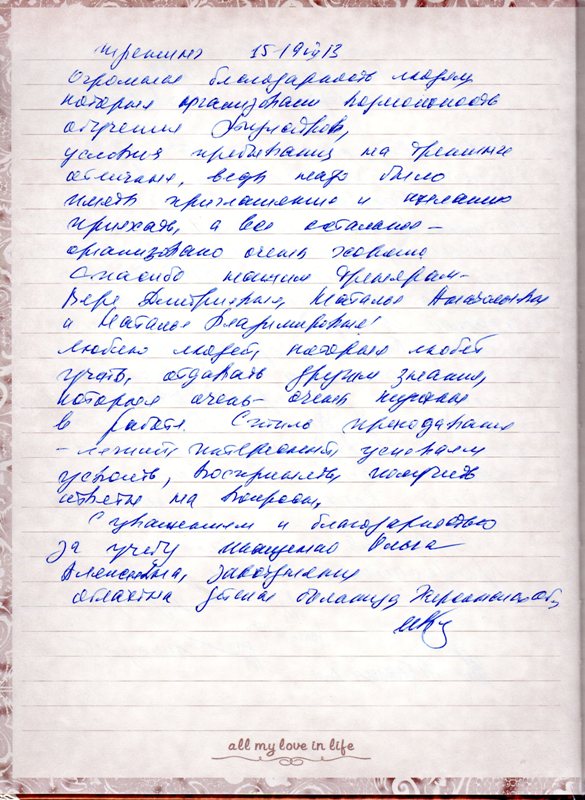 тренинг 15-19 VII 13
Огромная благодарность людям,
которые организовали возможность
обучения
условия пребывания на тренинге
отличные, ведь надо было
иметь приглашение и желание
приехать, а все остальное –
организовано очень хорошо
Спасибо нашим тренерам –
Вере Дмитриевне, Наталье Анатольевне
и Наталье Владимировне!
Люблю людей, которые любят
учить, отдавать другим знания,
которые очень-очень нужные
в работе. Стиль преподавания
успеваем
усвоить, воспринять, получить
ответы на вопросы.
С уважением и благодарностью
за учебу Ольга
Алексеевна,
областна больница
all my love in life